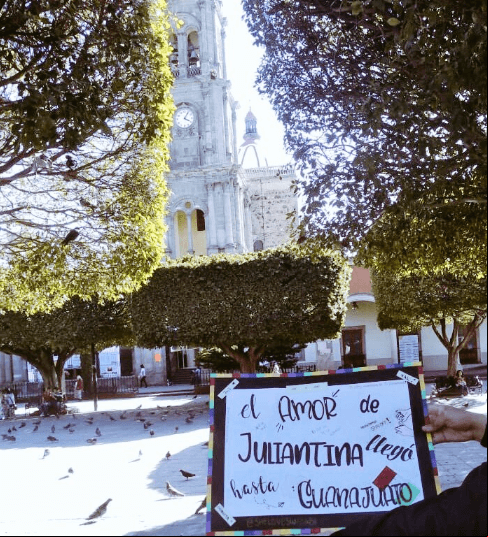 el AMOR de
JULIANTINA llegó
hasta GUANAJUATO